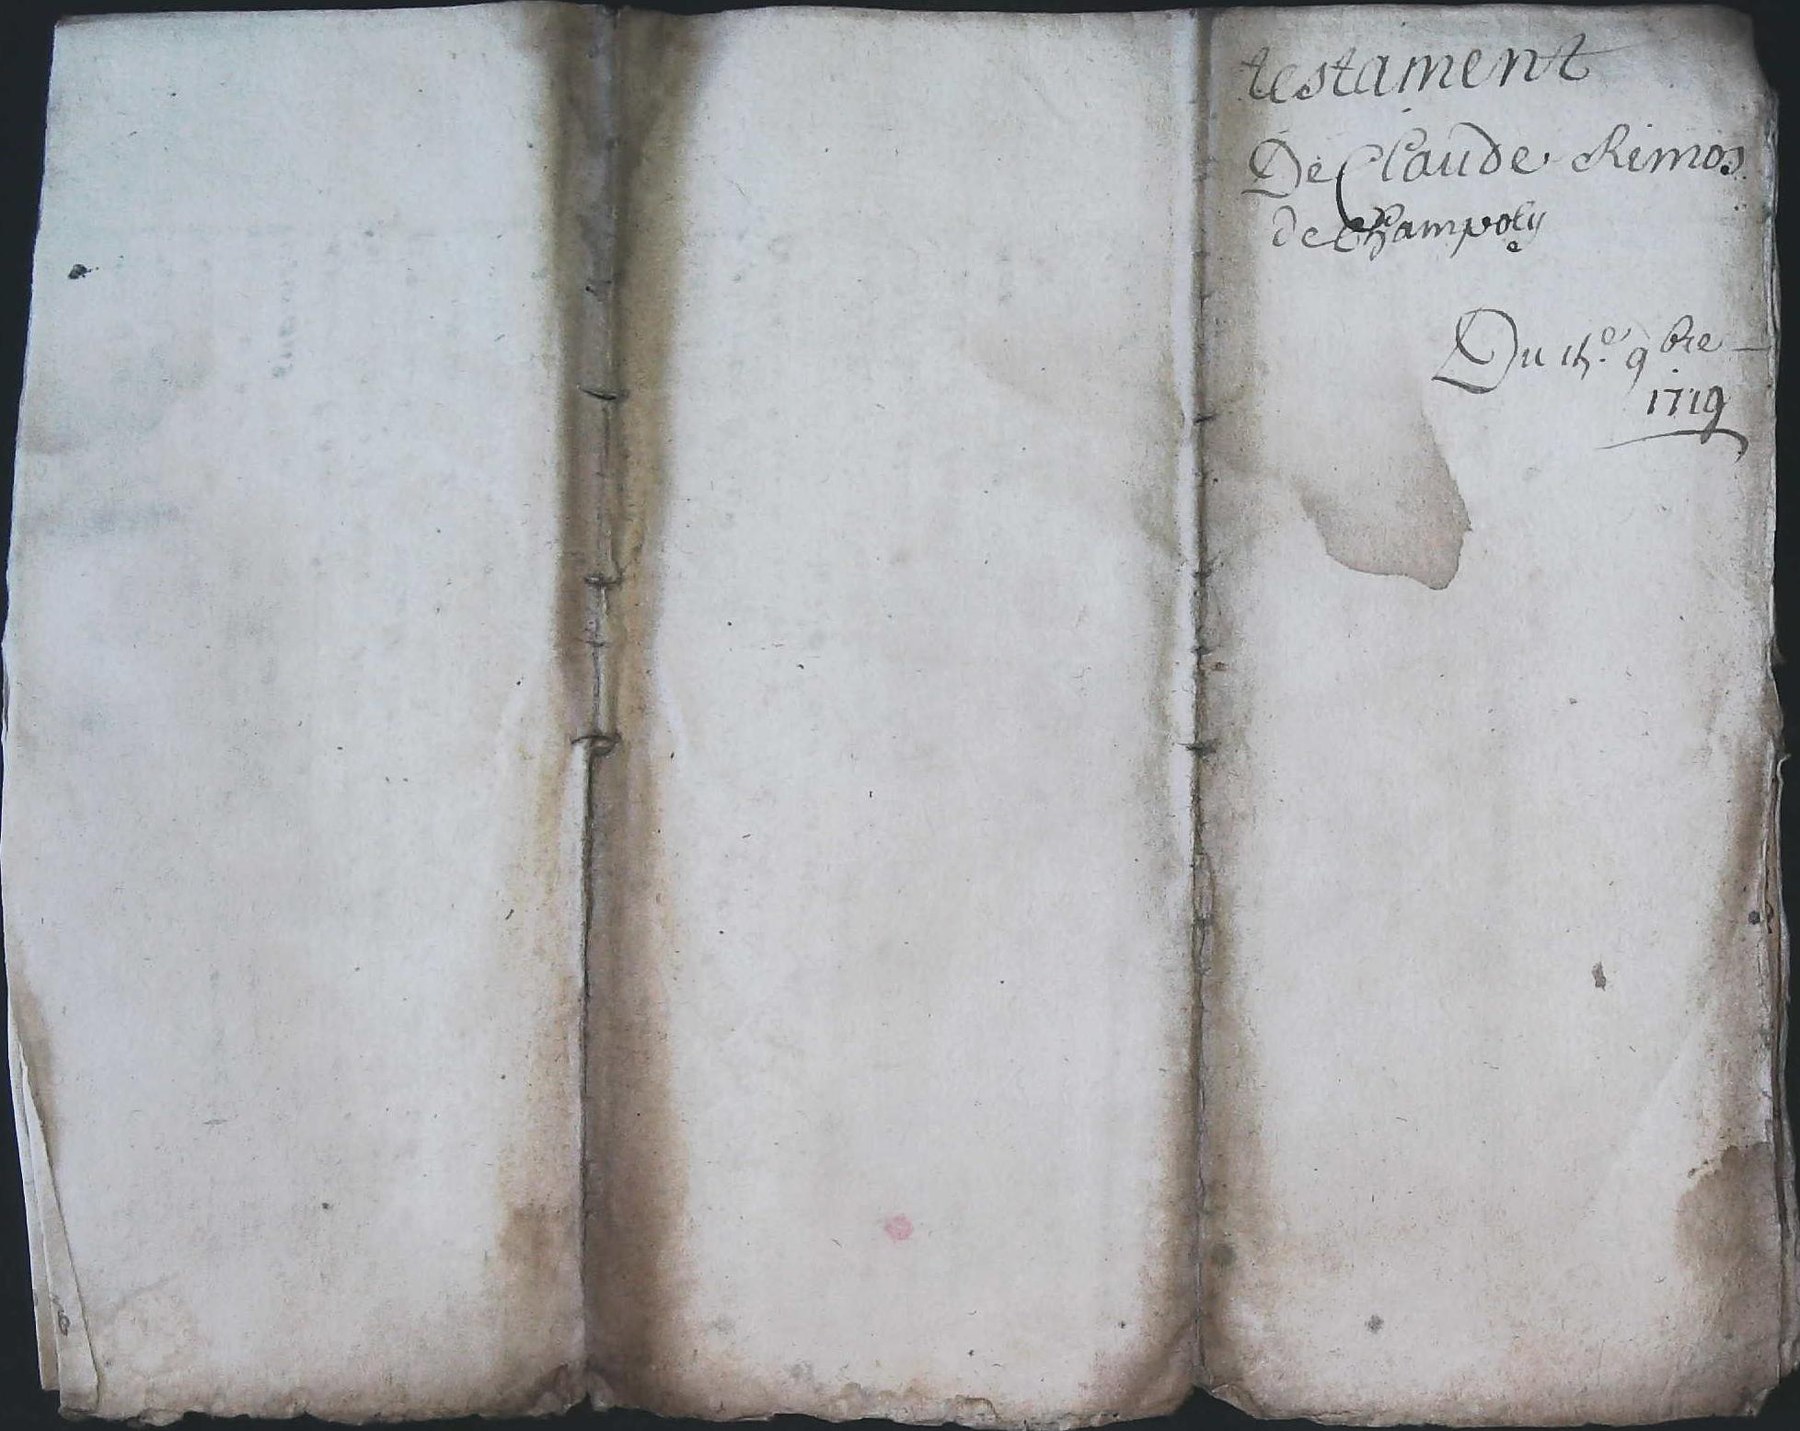 testament
De Claude Rimos
de Champoly
Du 1h.e 9bre
1719